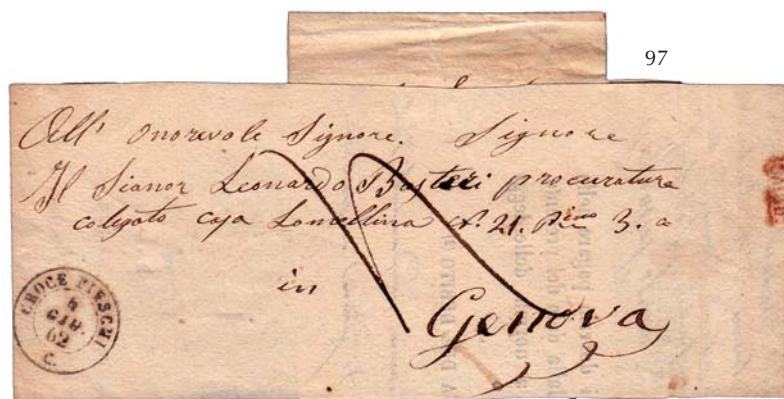 97
All' onorevole Signore. Signore
Il Sianor Leonardo Basteri procuratore
coligato casa Lomellina N. 21. Pimo 3. a
in
Genova
CROCE FIESCHI
GIU.
62
C.